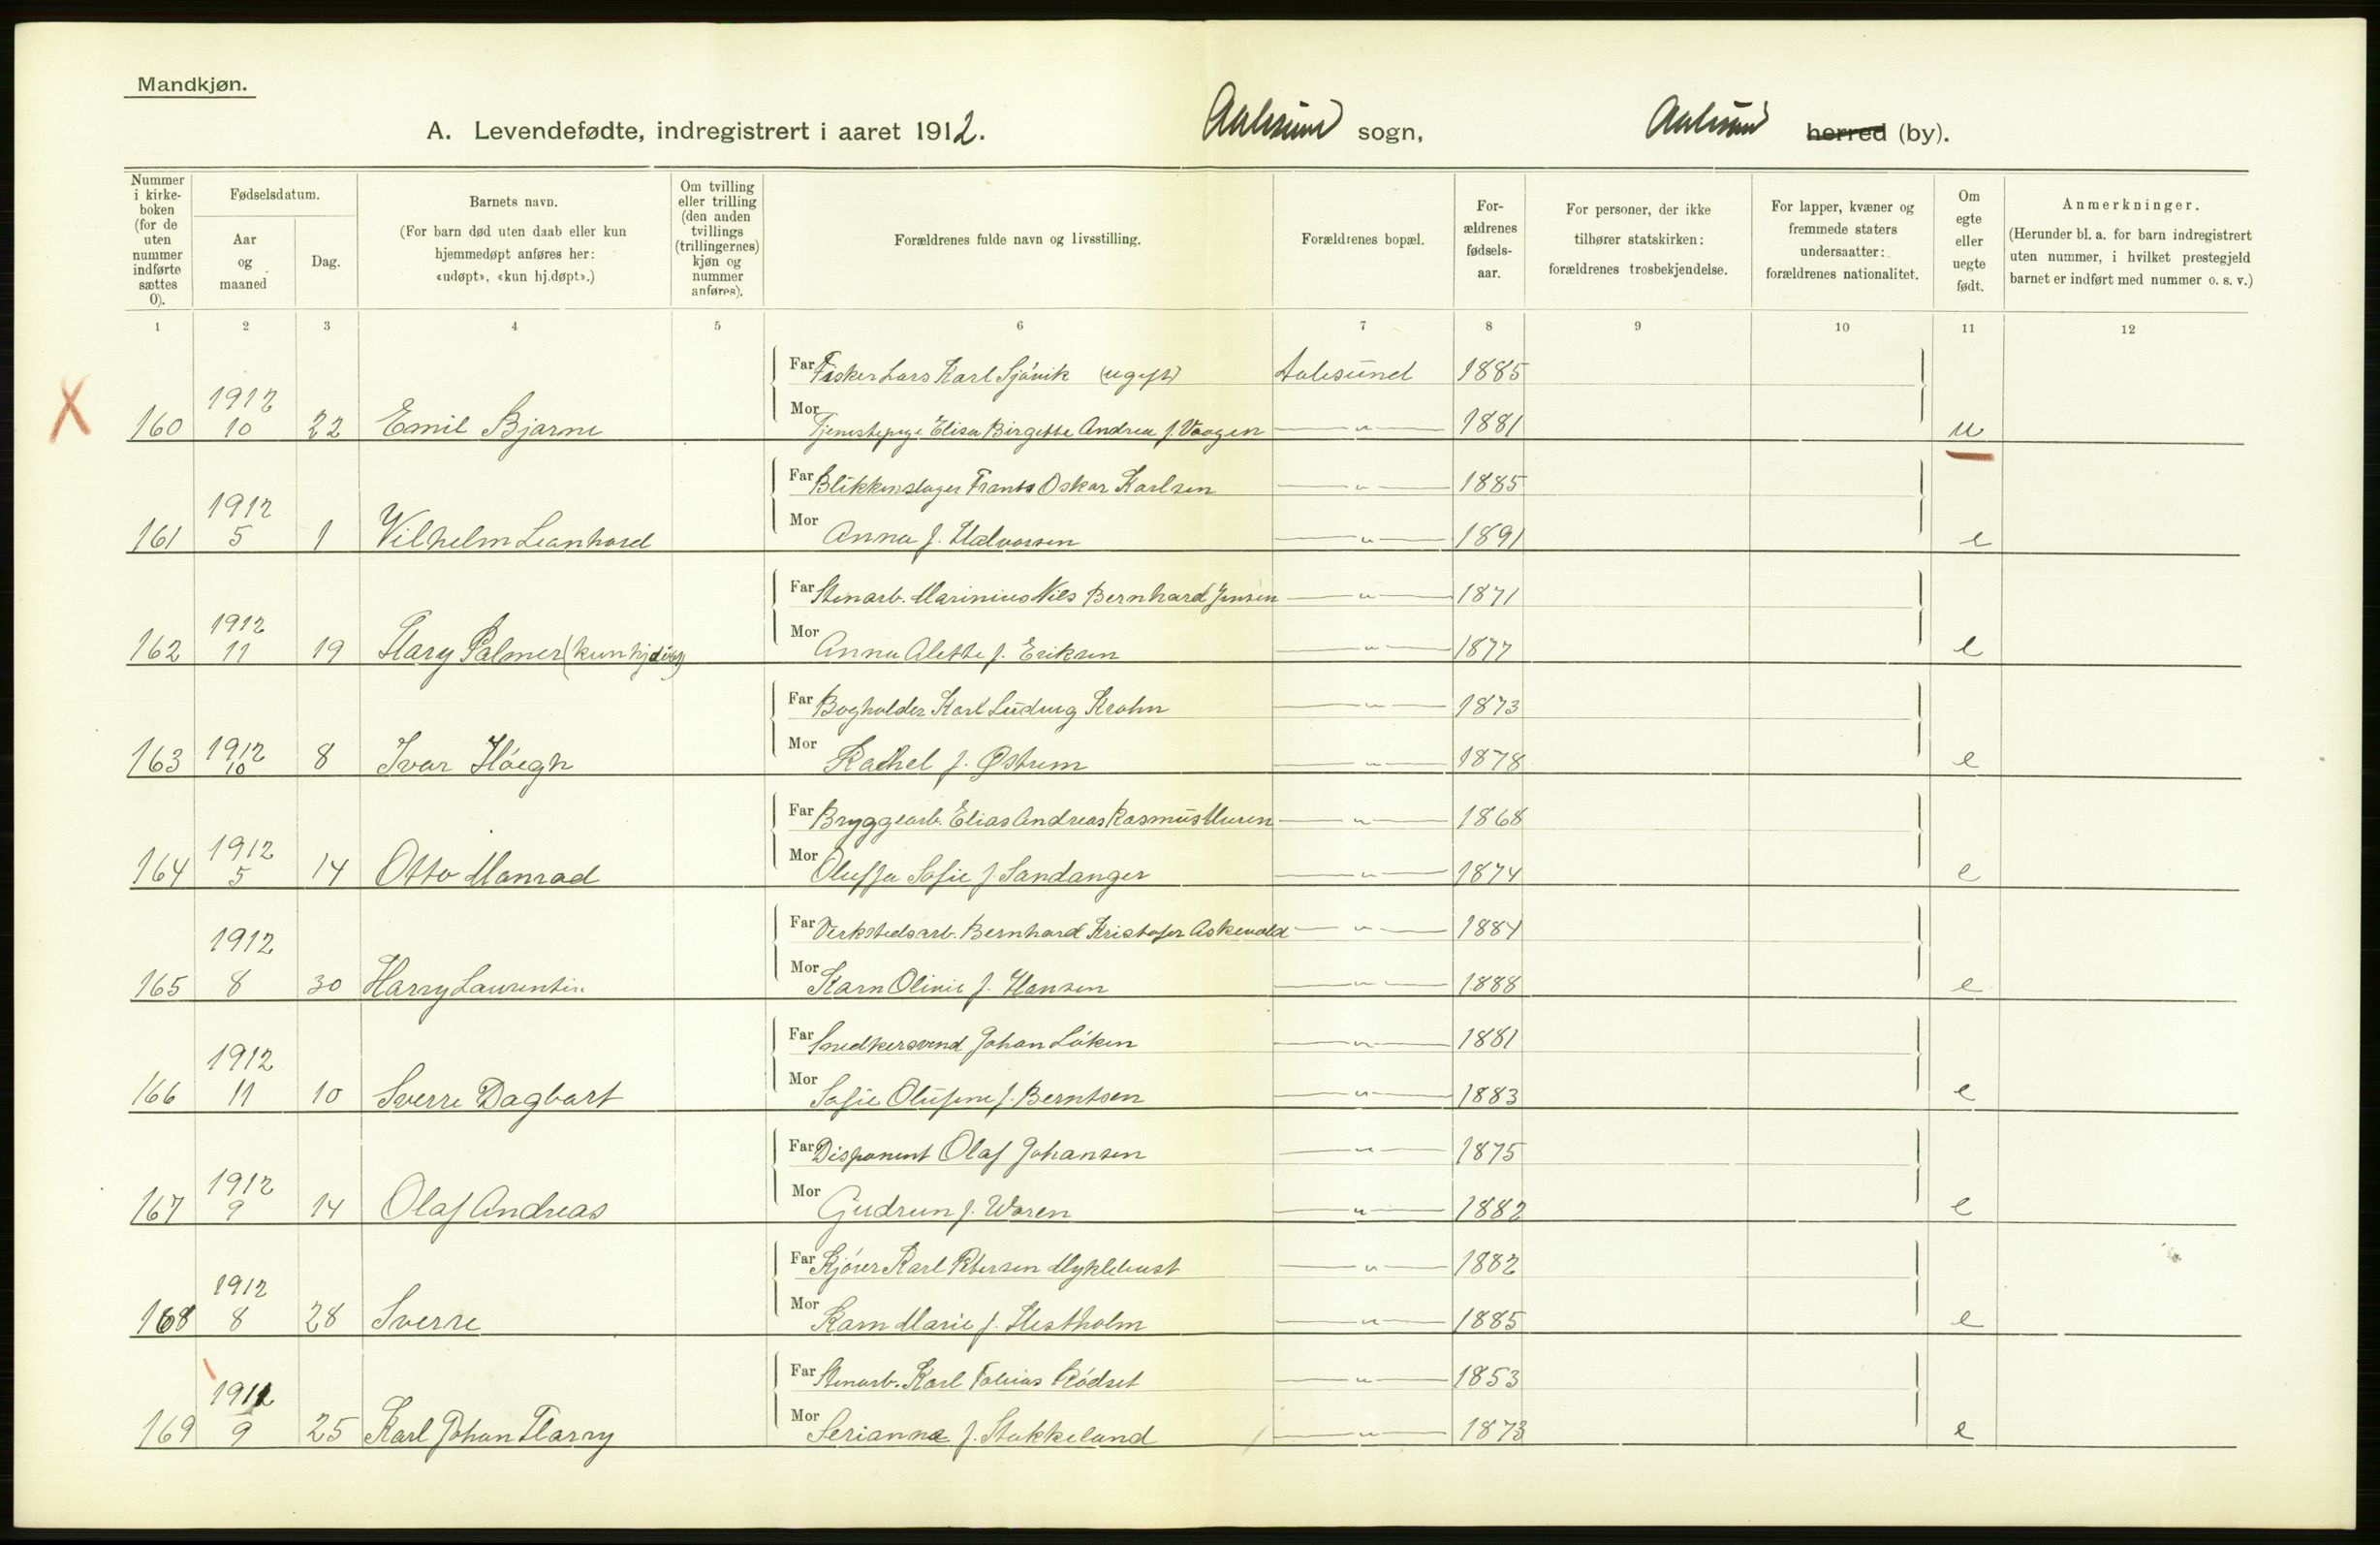 Mandkjøn.
A. Levendefødte, indregistrert i aaret 1912. Aalesund sogn, Aalesund herred (by).
Nummer i kirkeboken (for de uten nummer indførte sættes 0).
Fødselsdatum.
Aar og maaned
Dag.
Barnets navn.
(For barn død uten daab eller kun hjemmedøpt anføres her: «udøpt», «kun hj.døpt».)
Om tvilling eller trilling (den anden tvillings (trillingernes) kjøn og nummer anføres).
Forældrenes fulde navn og livsstilling.
Forældrenes bopæl.
Forældrenes fødselsaar.
For personer, der ikke tilhører statskirken: forældrenes trosbekjendelse.
For lapper, kvæner og fremmede staters undersaatter: forældrenes nationalitet.
Om egte eller uegte født.
Anmerkninger.
(Herunder bl. a. for barn indregistrert uten nummer, i hvilket prestegjeld barnet er indført med nummer o. s. v.)
1 2 3 4 5 6 7 8 9 10 11 12
Far Fisker Lars Karl Sjóvik (ugift) Aalesund 1885
160 1912 10 22 Emil Bjarne Mor Tjenestepige Elisa Birgitte Andrea f. Vaagen —"— 1881 u
Far Blikkenslager Frants Oskar Karlsen —"— 1885
161 1912 5 1 Vilhelm Leonhard Mor Anna f. Halvorsen —"— 1891 e
Far Stenarb. Marinius Nils Bernhard Jensen —"— 1871
162 1912 11 19 Hary Palmer (kun hjdöpt) Mor Anna Alette f. Eriksen —"— 1877 e
Far Bogholder Karl Ludvig Krohn —"— 1873
163 1912 10 8 Ivar Hóegh Mor Rachel f. Østrem —"— 1878 e
Far Bryggearb. Elias Andreas Rasmus Muren —"— 1868
164 1912 5 14 Otto Monrad Mor Oluffa Sofie f. Sandanger —"— 1874 e
Far Verkstedsarb. Bernhard Kristofer Askevold —"— 1884
165 1912 8 30 Harry Laurentin Mor Karn Olivie f. Hansen —"— 1888 e
Far Snedkersvend Johan Lóken —"— 1881
166 1912 11 10 Sverre Dagbart Mor Sofie Olufine f. Berntsen —"— 1883 e
Far Disponent Olaf Johansen —"— 1875
167 1912 9 14 Olaf Andreas Mor Gudrun f. Waren —"— 1882 e
Far Kjórer Karl Petersen Myklebust —"— 1882
168 1912 8 28 Sverre Mor Karn Marie f. Hestholm —"— 1885 e
Far Stenarb. Karl Tobias Ródset —"— 1853
169 1911 9 25 Karl Johan Harry Mor Serianna f. Stokkeland —"— 1873 e